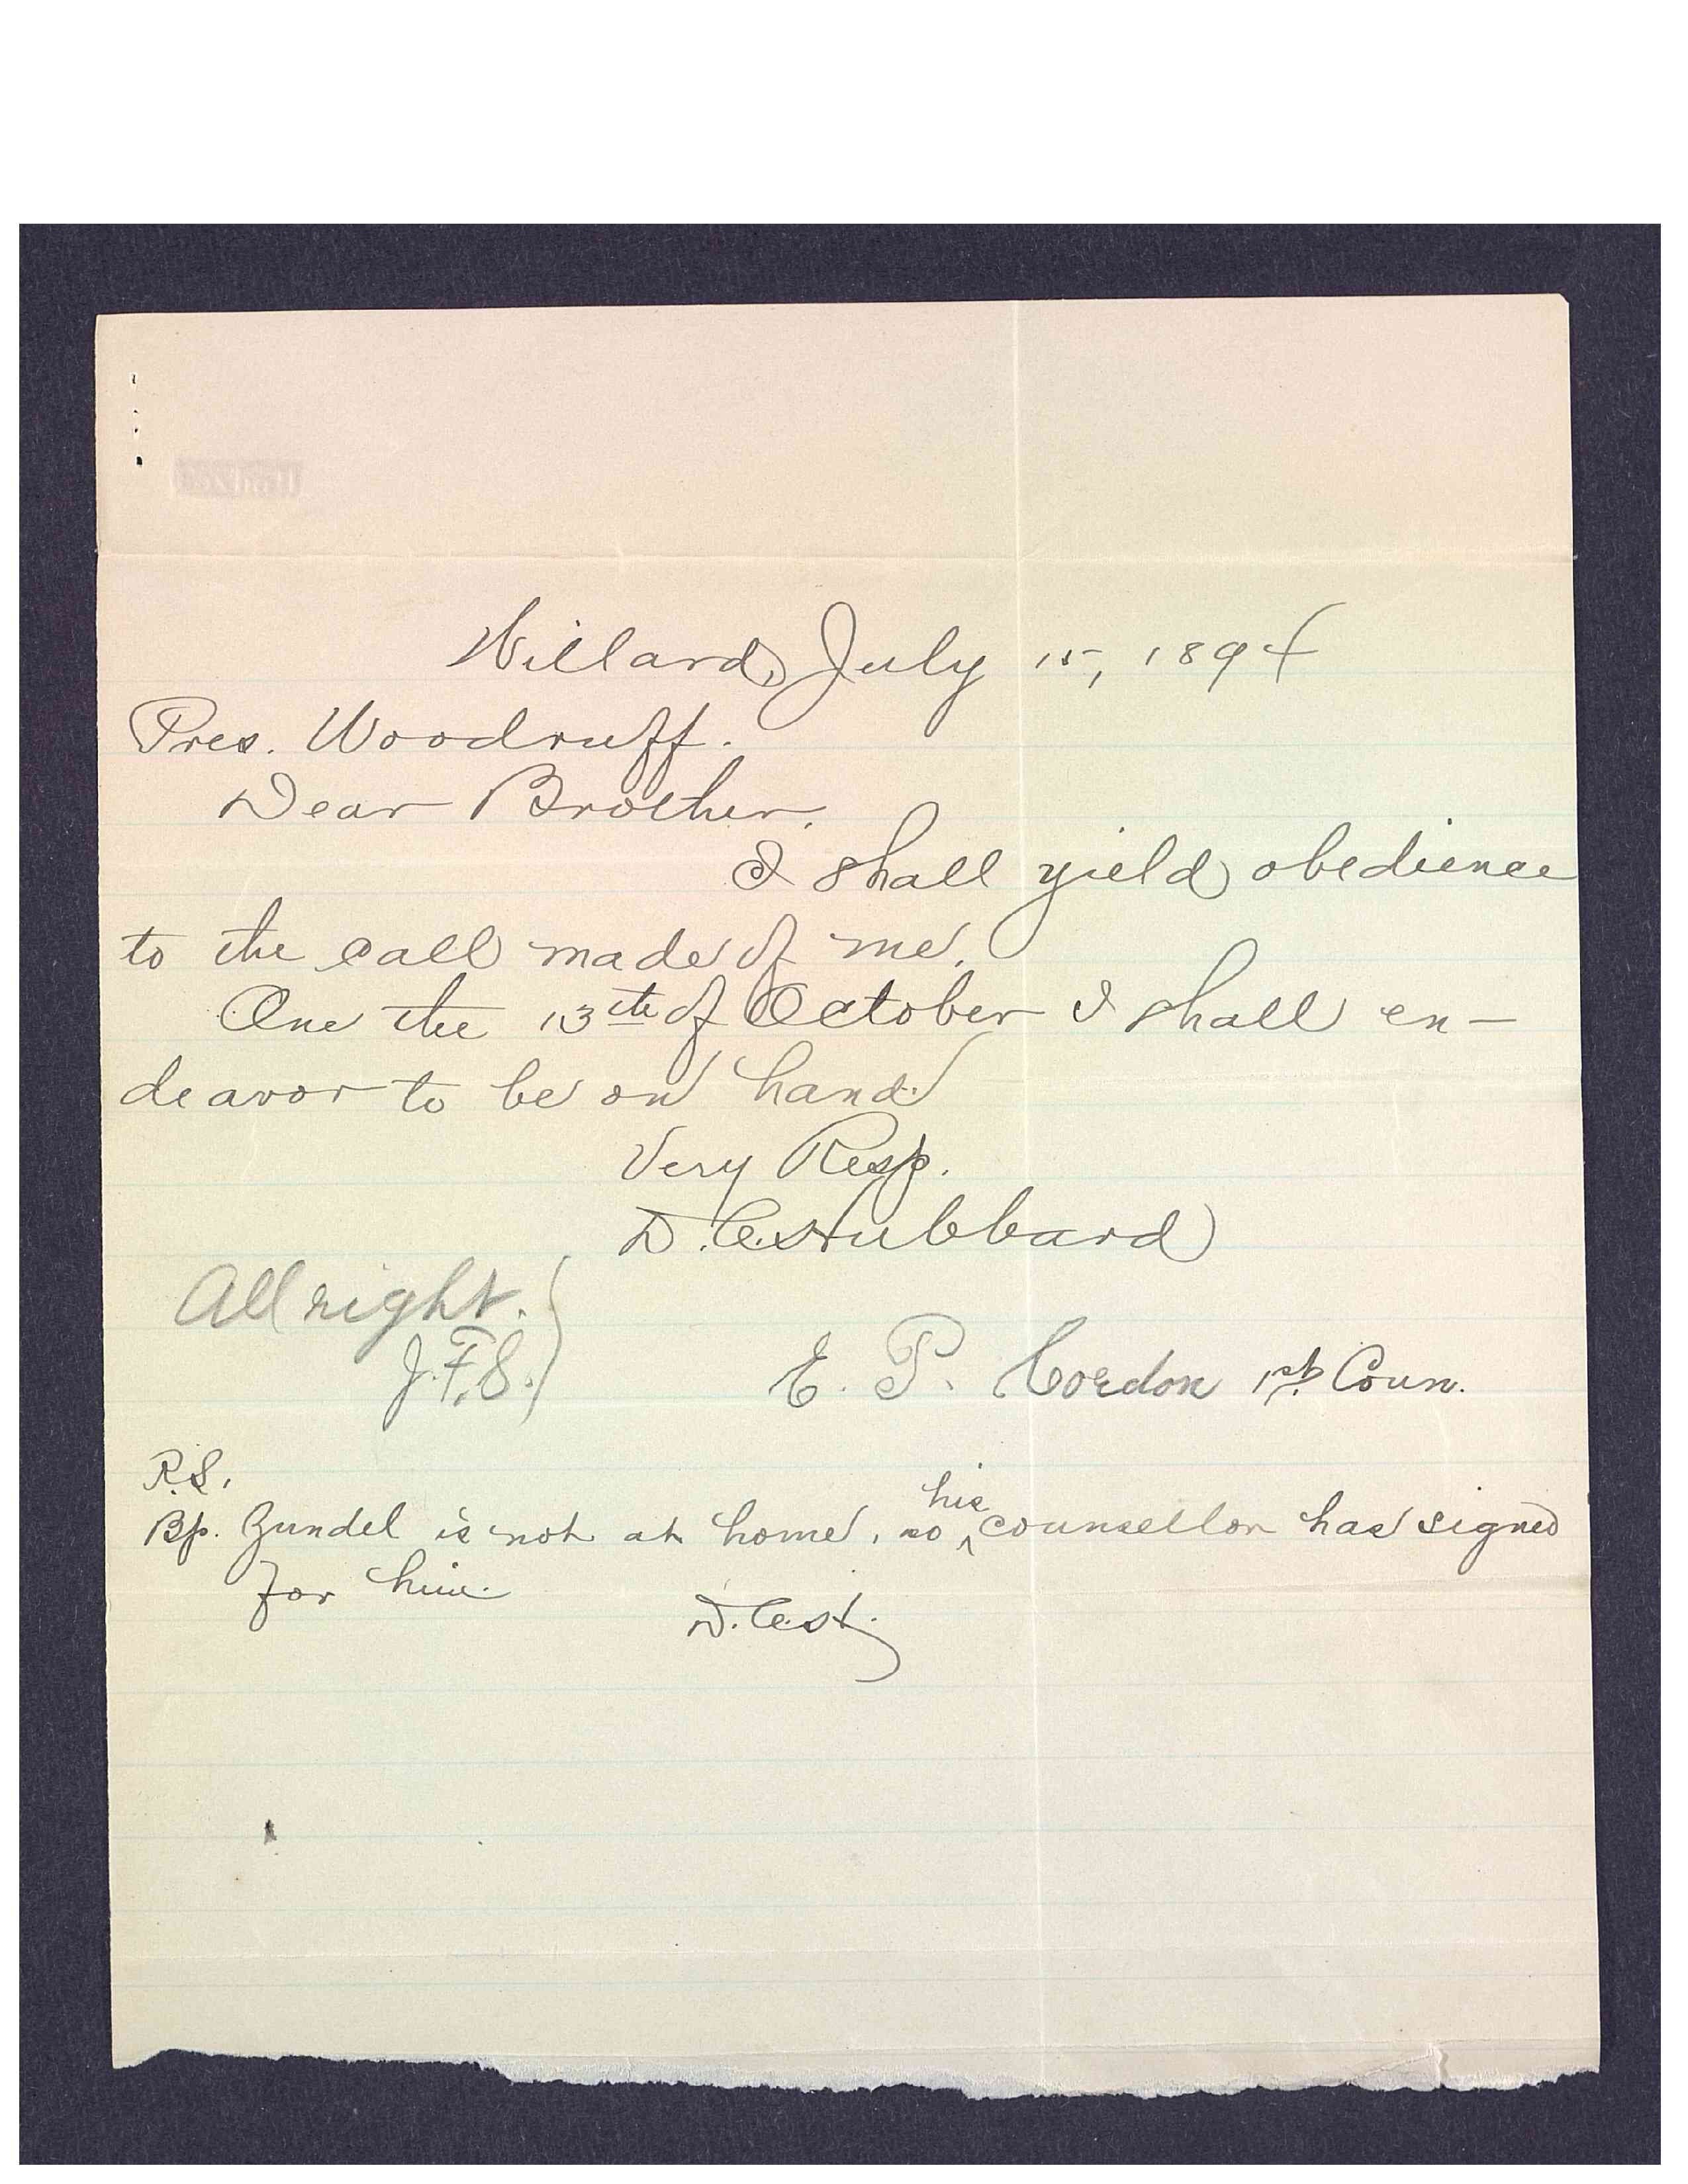 Willard, July 15, 1894
Pres. Woodruff.
Dear Brother.
I shall yield obedience
to the call made of me.
One the 13th of October I shall en-
deavor to be on hand.
Very Resp.
D. C. Hubbard
All right.
J.F.S.
E. P. Cordon 1st. Coun.
P.S.
Bp. Zundel is not at home, so his counsellor has signed
for him.
D.C.H.